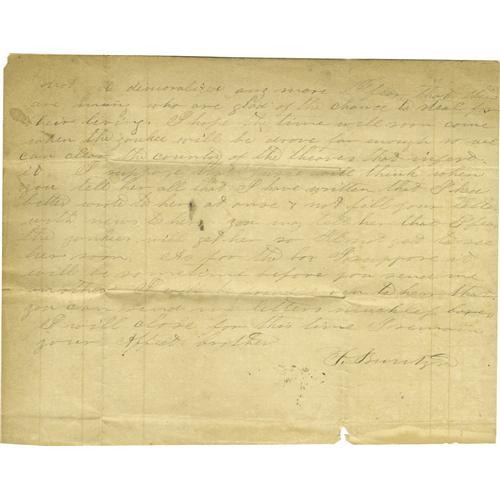 not be demoralize any more I fear that there
are many who are glad of the chance to steal for
their living. I hope the time will soon come
when the yankee will be drove far enough so we
can clear the country of the theaves that infest
it I suppose that will think when
you tell her all that I have written that I
better wrote to her at once & not fill your letter
with news to her you may tell her that I fear
the yankees will get her so I be glad to see
her soon. As for the box I suppose it
will be sometime before you send me
another I will be to hear that
you can send me letters
I will close for this time I remain
your Affect brother